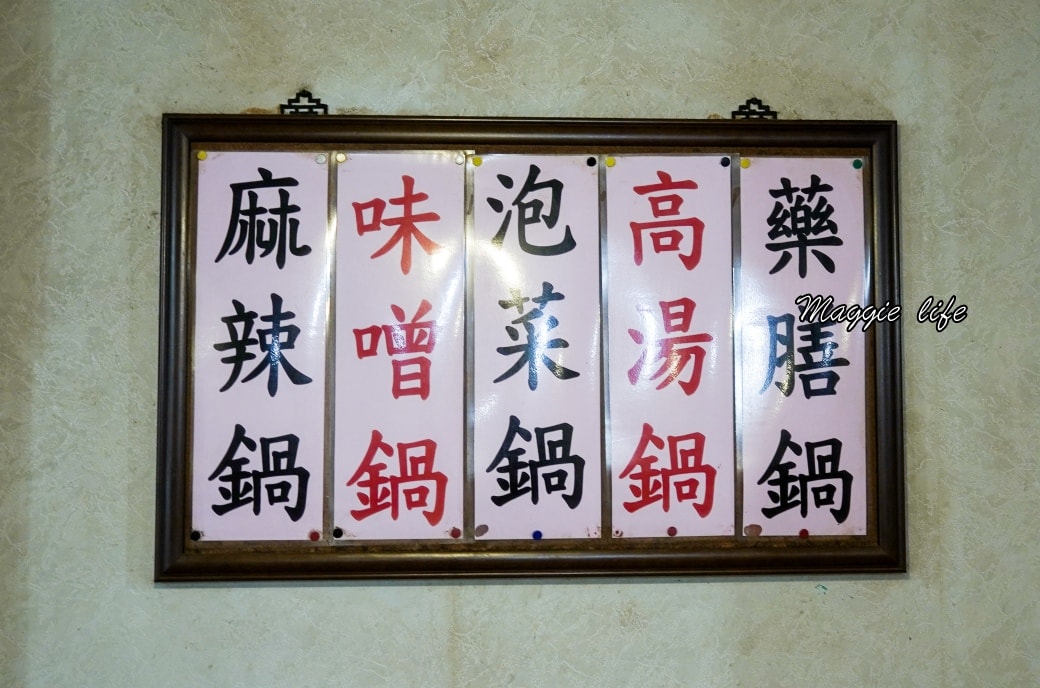 藥膳鍋
高湯鍋
泡菜鍋
味噌鍋
麻辣鍋
Maggie life